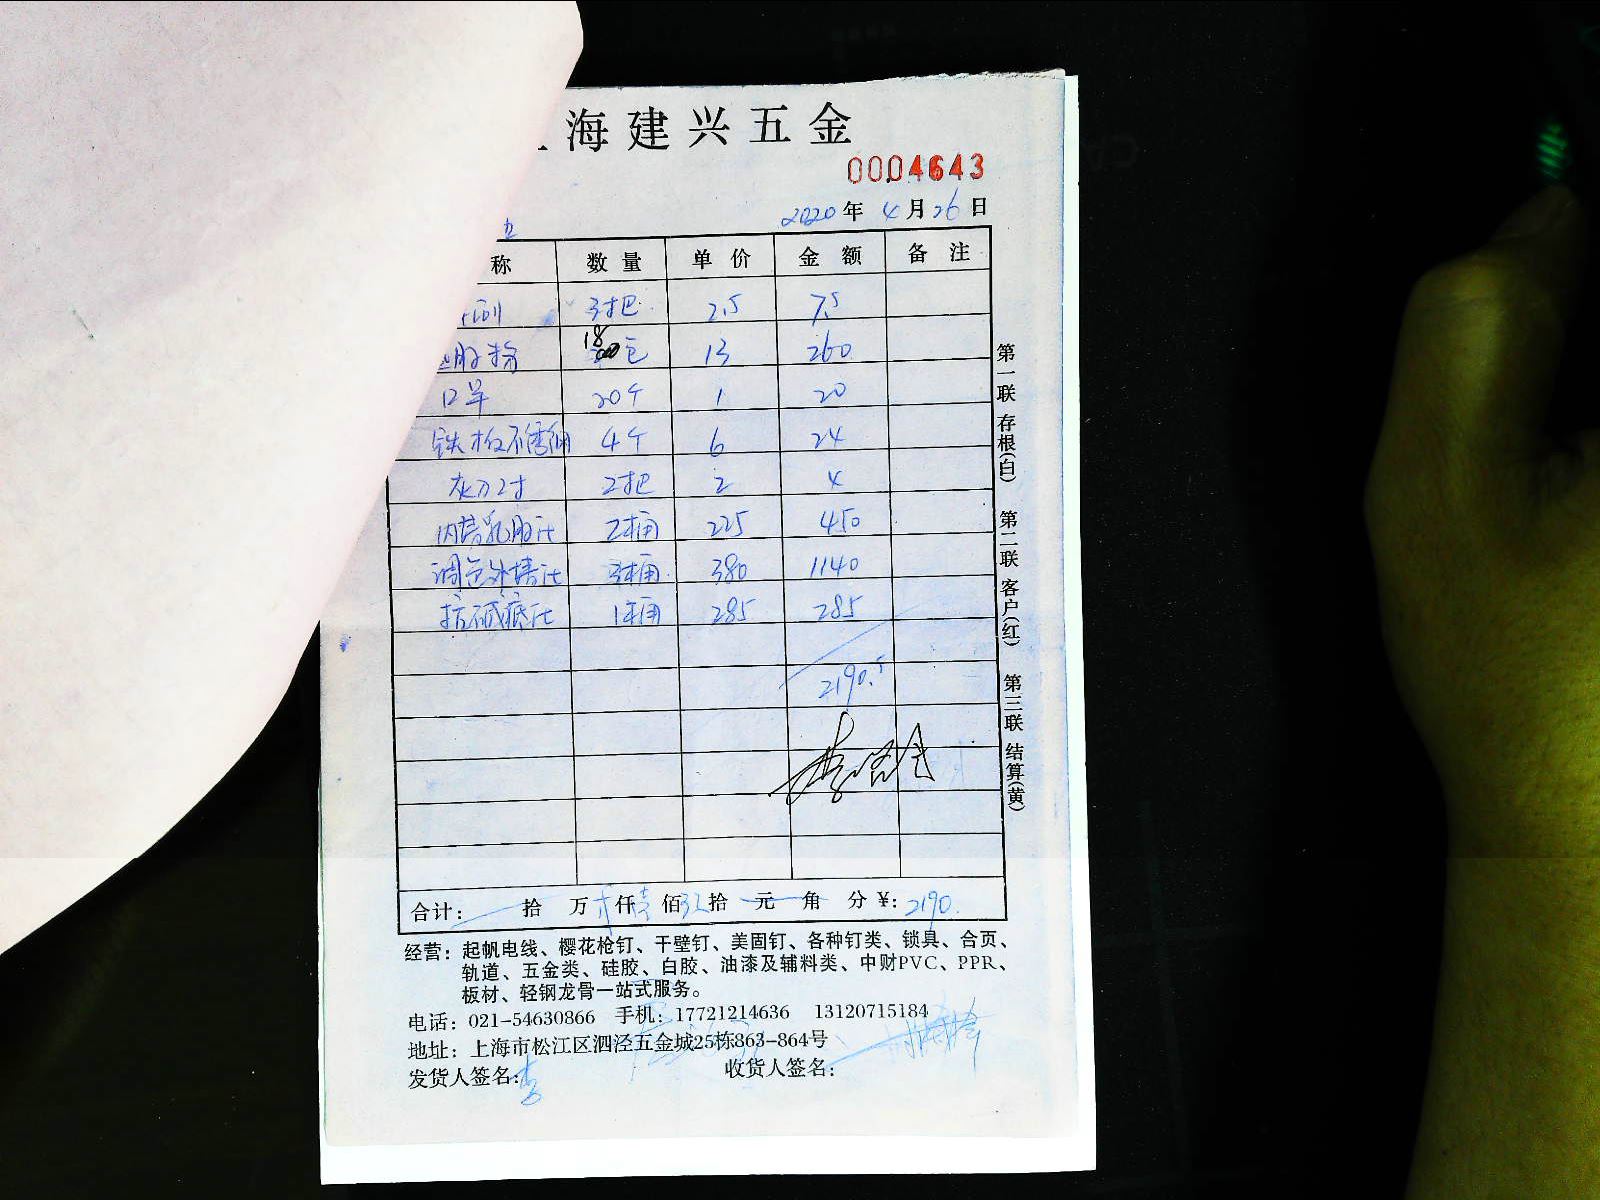 海建兴五金
0004643
2020年 4月26日
称 数量 单价 金额 备注
刷 3把 2.5 7.5
胶粉 18包 13 260
口罩 20个 1 20
铁板不锈钢 4个 6 24
灰刀2寸 2把 2 4
内墙乳胶漆 2桶 225 450
调色外墙漆 3桶 380 1140
抗碱底漆 1桶 285 285
2190.5
合计： 拾 万 仟壹佰玖拾 元 角 分 ¥: 2190.
第一联 存根(白) 第二联 客户(红) 第三联 结算(黄)
经营：起帆电线、樱花枪钉、干壁钉、美固钉、各种钉类、锁具、合页、
轨道、五金类、硅胶、白胶、油漆及辅料类、中财PVC、PPR、
板材、轻钢龙骨一站式服务。
电话：021-54630866 手机：17721214636 13120715184
地址：上海市松江区泗泾五金城25栋863-864号
发货人签名:李 收货人签名: